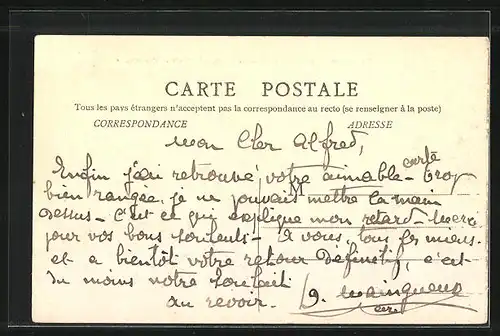 CARTE POSTALE
Tous les pays étrangers n'acceptent pas la correspondance au recto (se renseigner à la poste)
CORRESPONDANCE ADRESSE
Mon Cher Alfred,
Enfin j'ai retrouvé votre aimable carte trop
M
bien rangée, je ne pouvais mettre la main
dessus - C'est ce qui explique mon retard - Merci
pour vos bons souhaits - à vous, tous les miens
et a bientôt votre retour definitif, c'est
du moins notre souhait
au revoir.